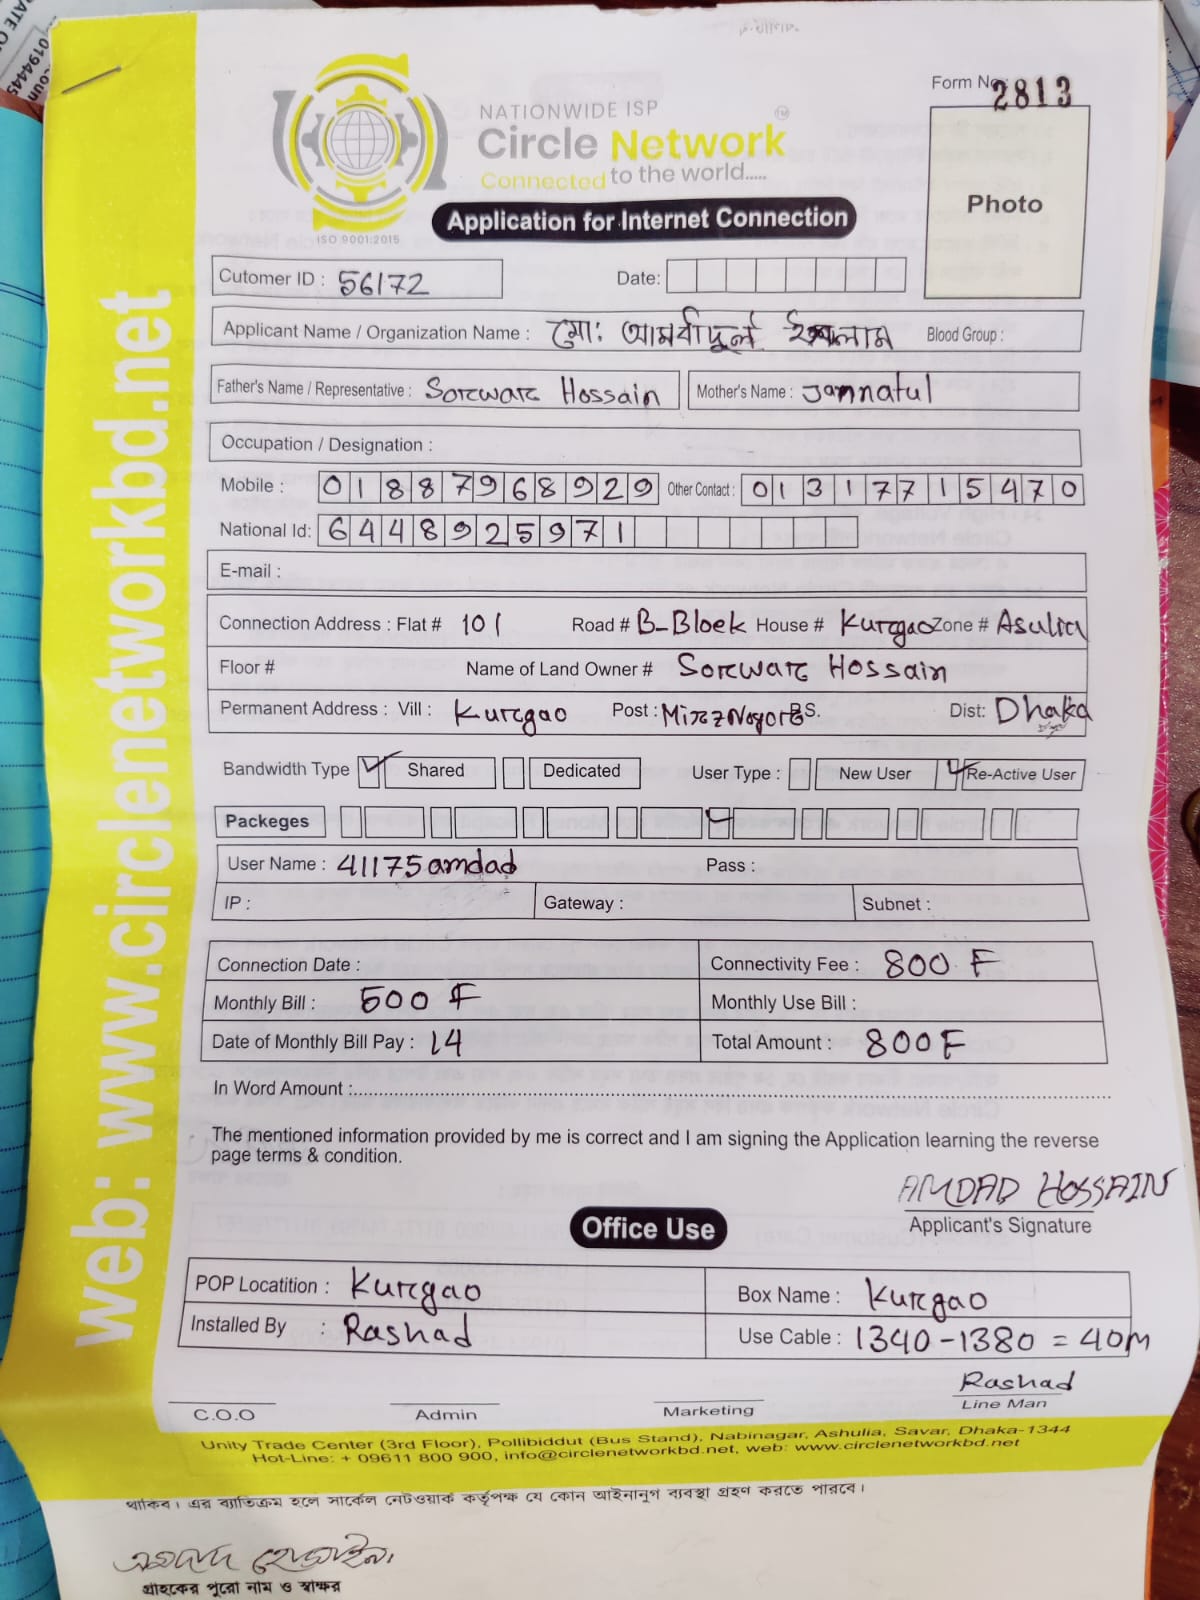 Form No: 2813
NATIONWIDE ISP
Circle Network TM
Connected to the world.....
ISO 9001:2015
Application for Internet Connection
Photo
Cutomer ID : 56172 Date:
Applicant Name / Organization Name : মো: ইসলাম Blood Group :
Father's Name / Representative : Sorwar Hossain Mother's Name : Jannatul
Occupation / Designation :
Mobile : 01887968929 Other Contact : 01317715470
National Id: 6448925971
E-mail :
Connection Address : Flat # 101 Road # B-Bloek House # Kurgao Zone # Asulia
Floor # Name of Land Owner # Sorwar Hossain
Permanent Address : Vill : Kurgao Post : P.S. Dist: Dhaka
Bandwidth Type Shared Dedicated User Type : New User Re-Active User
Packeges
User Name : 41175amdad Pass :
IP : Gateway : Subnet :
Connection Date : Connectivity Fee : 800 F
Monthly Bill : 500 F Monthly Use Bill :
Date of Monthly Bill Pay : 14 Total Amount : 800F
In Word Amount :
The mentioned information provided by me is correct and I am signing the Application learning the reverse
page terms & condition.
AMDAD HOSSAIN
Applicant's Signature
Office Use
POP Locatition : Kurgao Box Name : Kurgao
Installed By : Rashad Use Cable : 1340-1380 = 40M
Rashad
C.O.O Admin Marketing Line Man
Unity Trade Center (3rd Floor), Pollibiddut (Bus Stand), Nabinagar, Ashulia, Savar, Dhaka-1344
Hot-Line: + 09611 800 900, info@circlenetworkbd.net, web: www.circlenetworkbd.net
web: www.circlenetworkbd.net
থাকিব। এর ব্যতিক্রম হলে সার্কেল নেটওয়ার্ক কর্তৃপক্ষ যে কোন আইনানুগ ব্যবস্থা গ্রহণ করতে পারবে।
এমদাদ হোসাইন
গ্রাহকের পুরো নাম ও স্বাক্ষর